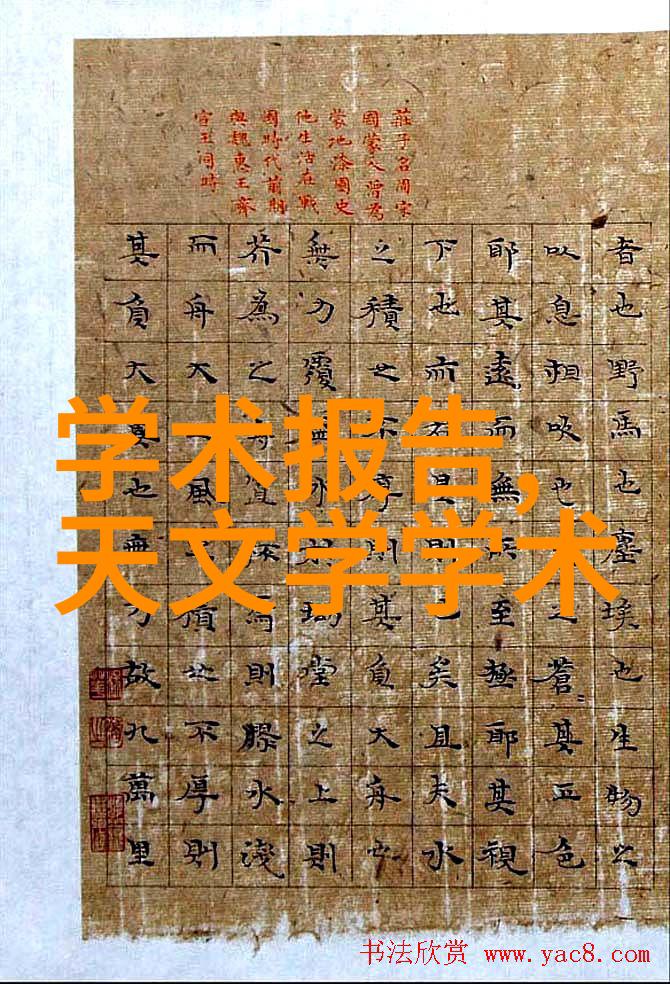 莊子名周宋
國蒙人曾為
蒙地漆園史
他生活在戰
國時代前期
與魏惠王齊
宣王同時
者也野馬也塵埃也生物之
以息相吹也之蒼〻其正色
耶其遠而無所至極耶其視
下也而若是則已矣且夫水
之積也不厚則其負大舟也
無力覆盃水於坳堂之上則
芥為之舟置杯焉則膠水淺
而舟大風之積也不厚則
其負大翼也無力故九萬里
学术报告,
天文学学术
书法欣赏 www.yac8.com